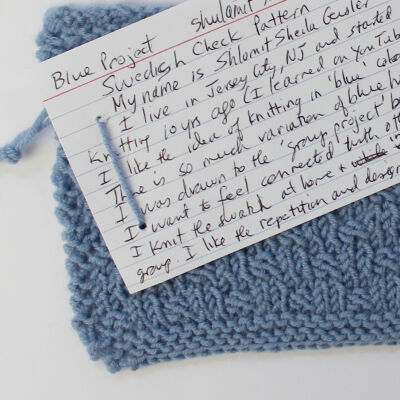 Blue Project Shulamit
Swedish Check Pattern
My name is Shlomit Sheila Geisler
I live in Jersey City, NJ and started
Knitting 10 yrs ago (I learned on YouTube
I like the idea of knitting in 'blue' color
There is so much variation of blue h
I was drawn to the 'group project' b
I want to feel connected with oth
I knit the swatch at home &
group. I like the repetition and design